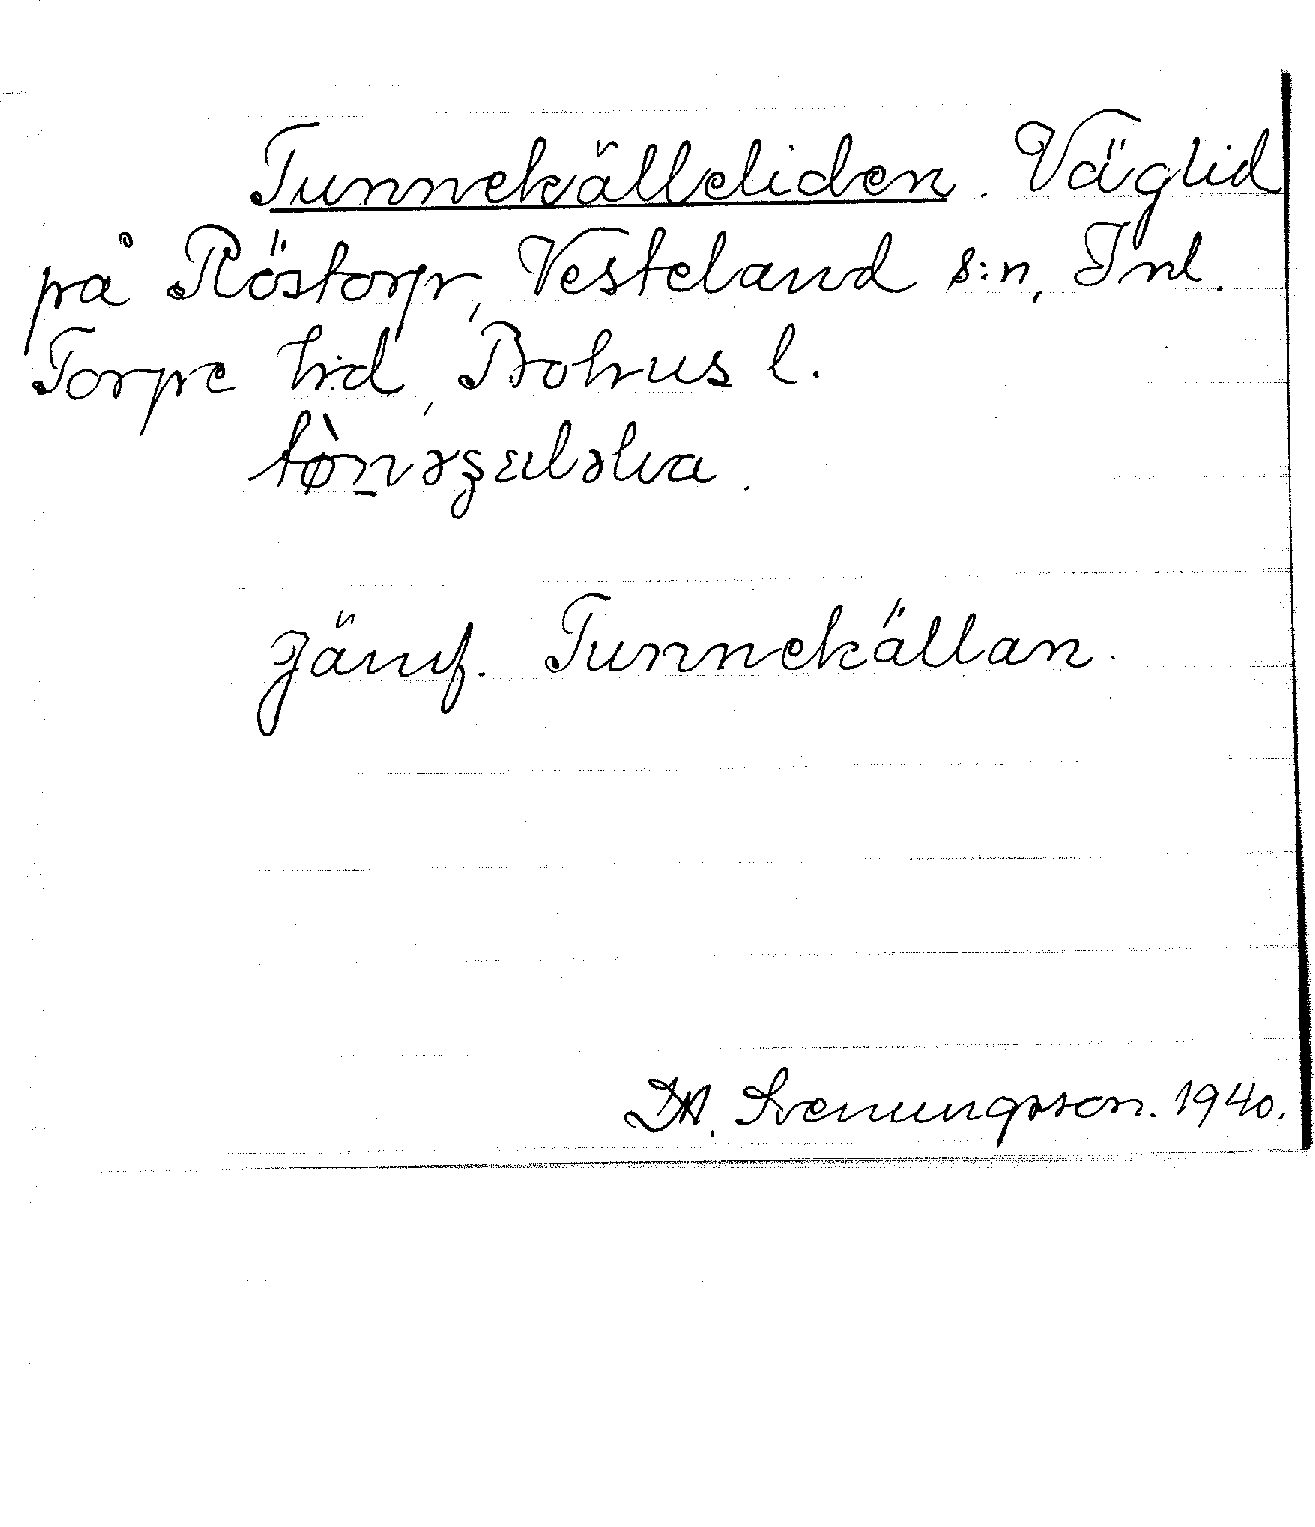 Tunnekälleliden. Väglid
på Röstorp, Vesteland s:n, Inl.
Torpe h:d, Bohus l.
Jämf. Tunnekällan.
D.A. Svenungsson. 1940.